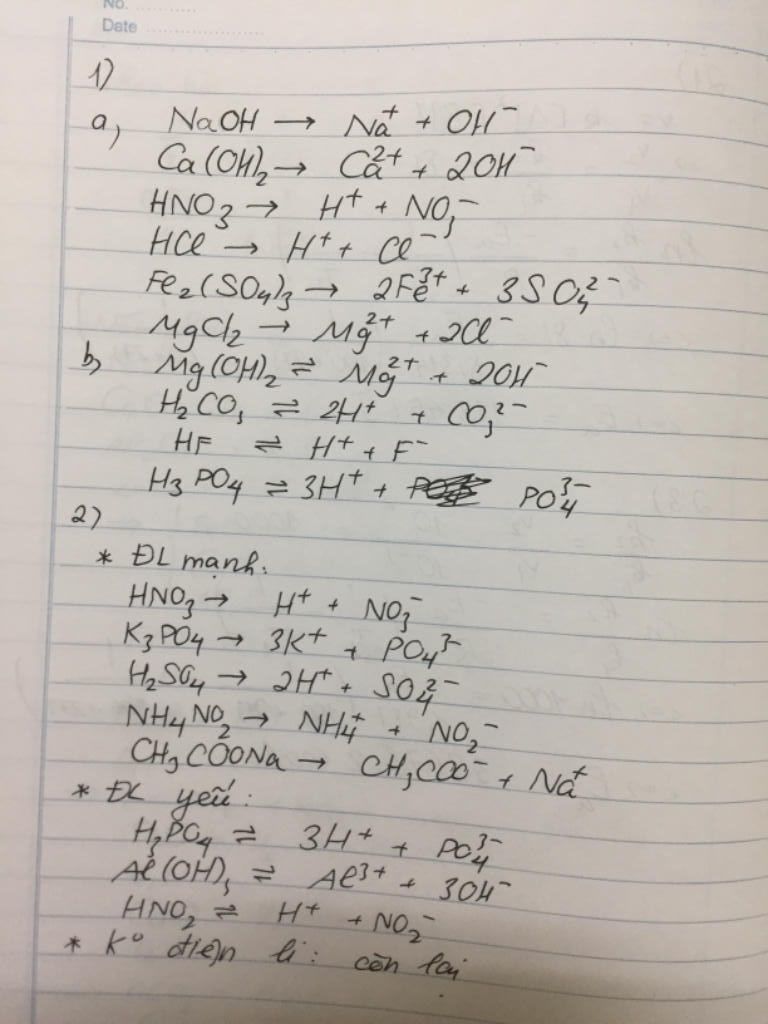 No. ............
Date ............
1)
a, NaOH → Na⁺ + OH⁻
Ca(OH)₂ → Ca²⁺ + 2OH⁻
HNO₃ → H⁺ + NO₃⁻
HCl → H⁺ + Cl⁻
Fe₂(SO₄)₃ → 2Fe³⁺ + 3SO₄²⁻
MgCl₂ → Mg²⁺ + 2Cl⁻
b, Mg(OH)₂ ⇌ Mg²⁺ + 2OH⁻
H₂CO₃ ⇌ 2H⁺ + CO₃²⁻
HF ⇌ H⁺ + F⁻
H₃PO₄ ⇌ 3H⁺ + PO₄³⁻
2)
* ĐL mạnh:
HNO₃ → H⁺ + NO₃⁻
K₃PO₄ → 3K⁺ + PO₄³⁻
H₂SO₄ → 2H⁺ + SO₄²⁻
NH₄NO₂ → NH₄⁺ + NO₂⁻
CH₃COONa → CH₃COO⁻ + Na⁺
* ĐL yếu:
H₃PO₄ ⇌ 3H⁺ + PO₄³⁻
Al(OH)₃ ⇌ Al³⁺ + 3OH⁻
HNO₂ ⇌ H⁺ + NO₂⁻
* K° điện li: còn lại